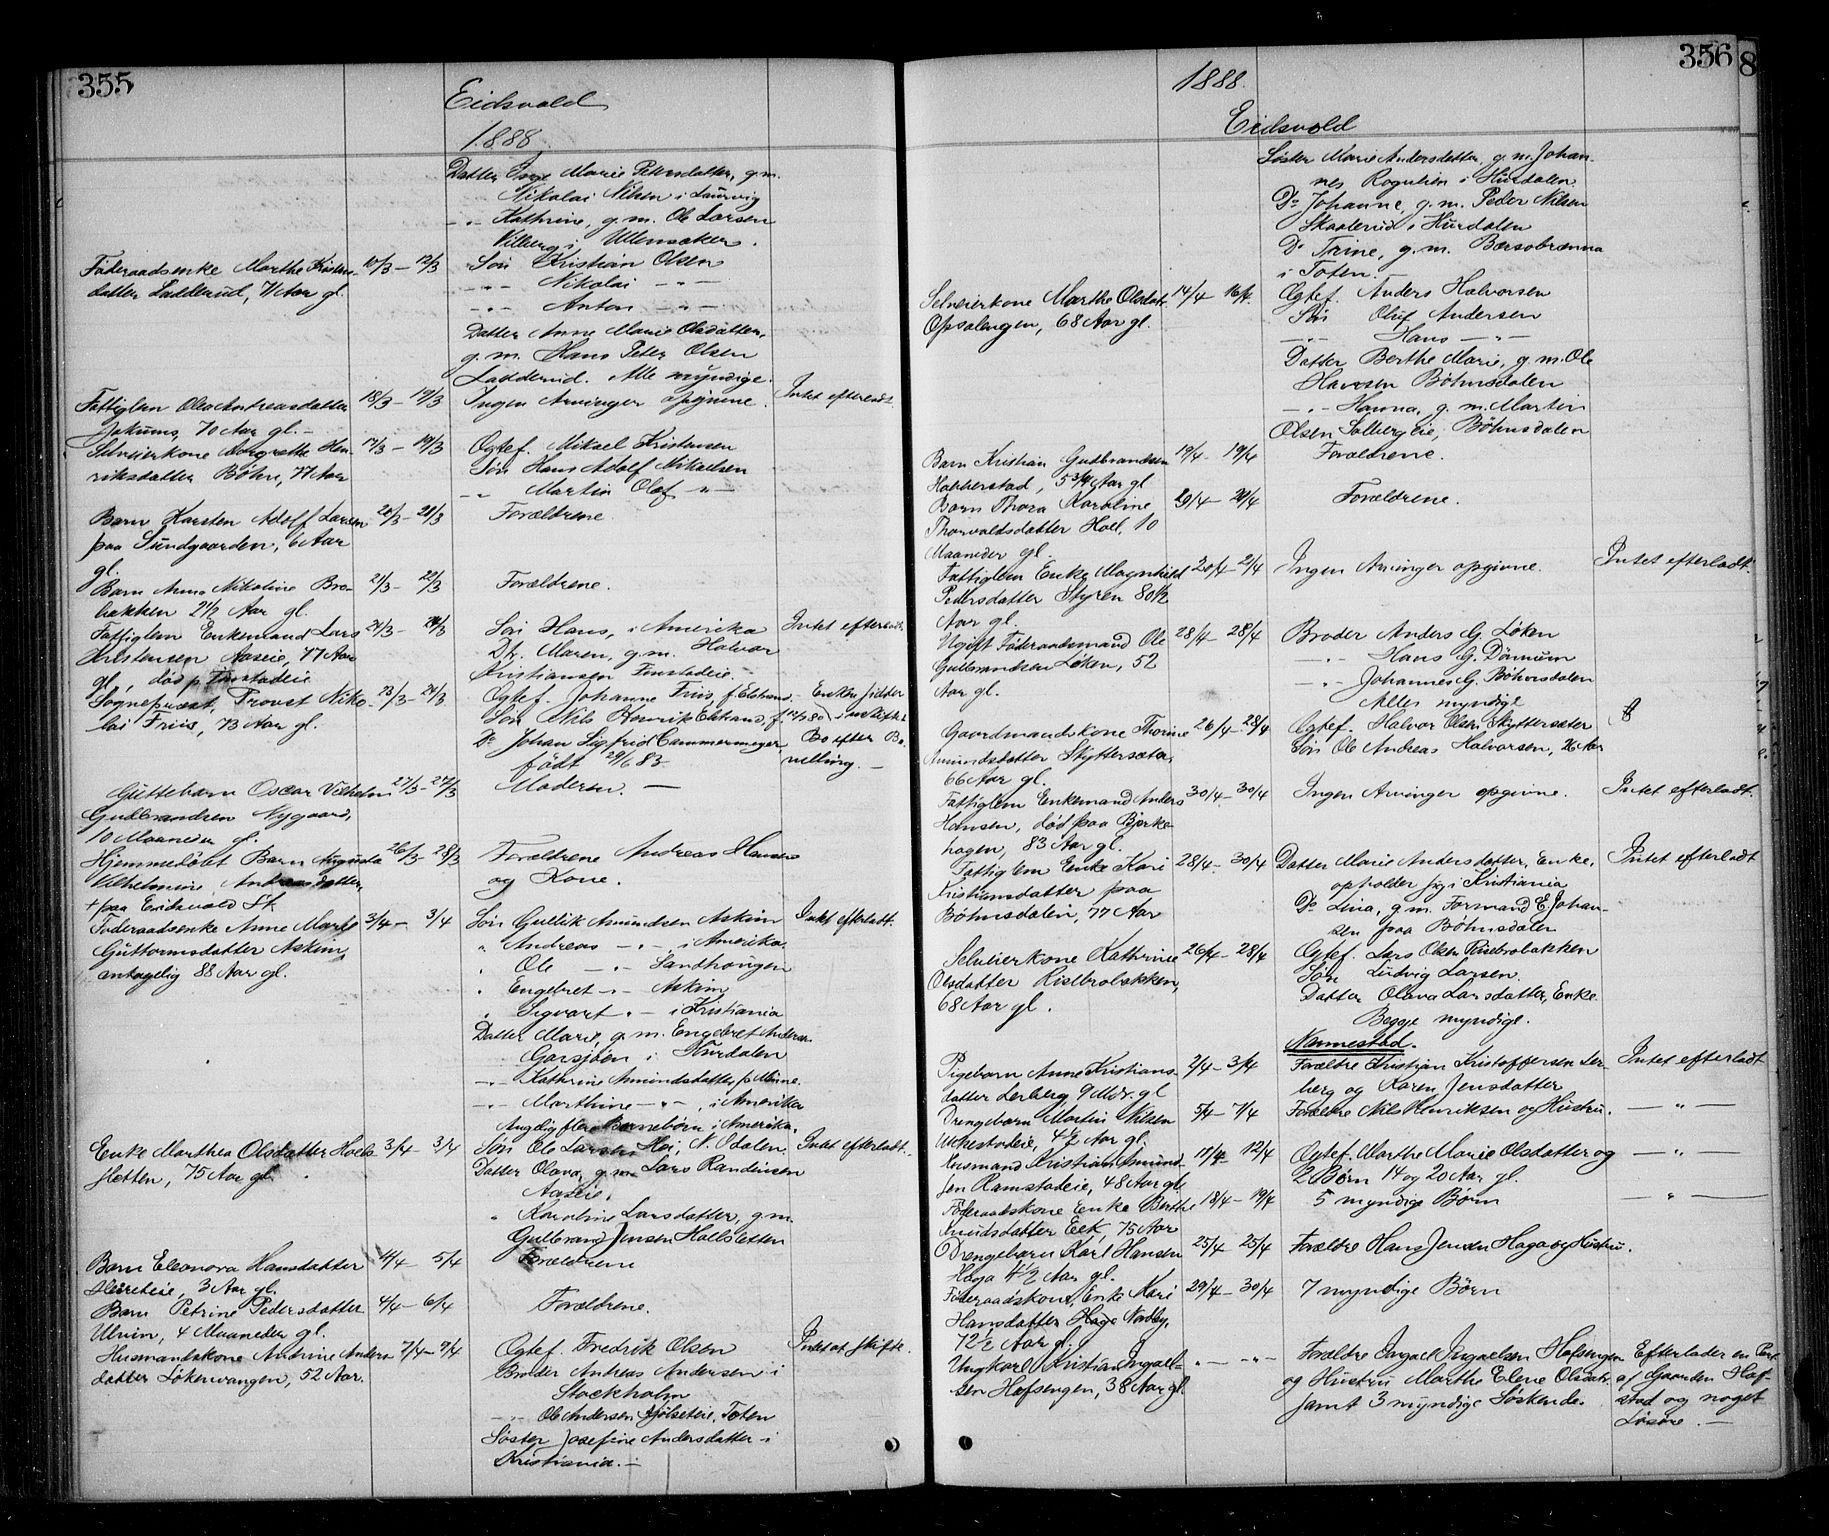 355
Eidsvold
1888.
Datter Inge Marie Pettersdatter, g. m.
Nikolai Nilsen i Laurvig
-„- Kathrine, g. m. Ole Larsen
Vilberg i Ullensaker.
Føderaadsenke Marthe Kristens- 10/3 — 12/3 Søn Kristian Olsen
datter Ladderud, 71 Aar gl. -„- Nikolai -„-
-„- Anton -„-
Datter Anne Marie Olsdatter,
g. m. Hans Peter Olsen
Ladderud. Alle myndige.
Fattiglem Olea Andreasdatter 18/3 — 19/3 Ingen Arvinger opgivne. Intet efterladt.
70 Aar gl. —
Selveierkone Hen- 17/3 — 19/3 Ægtef. Mikael Kristensen
riksdatter Bøhn, 77 Aar Søn Hans Adolf Mikaelsen
-„- Martin Olaf -„-
Barn Karsten Adolf Larsen 20/3 — 21/3 Forældrene
paa Sundgaarden, 6 Aar
gl.
Barn Anna Nikoline Bro- 21/3 — 22/3 Forældrene.
bakken 2 1/2 Aar gl.
Fattiglem Enkemand Lars 21/3 — 24/3 Søn Hans, i Amerika Intet efterladt.
Kristensen Aaseie, 77 Aar Dtr. Maren, g. m. Halvor
gl, død p. Finstadeie Kristiansen Finstadeie. —
Sognepræst, Provst Niko- 23/3 — 24/3 Ægtef. Johanne Friis, f. — Enken sidder
lai Friis, 73 Aar gl. Søn Nils Henrik f. 12/ 80 i uskiftet
Do Johan Sigfrid Cammermeyer Bo efter Be-
født 29/6 83. villing. —
Guttebarn Oscar Vilhelm 27/3 — 27/3 Moderen. —
Gulbrandsen Nygaard,
10 Maaneder gl.
Hjemmedøbt Barn Augusta 26/3 — 28/3 Forældrene Andreas Hansen
Vilhelmine Andreasdatter og Kone.
+ paa Eidsvold St.
Føderaadsenke Anne Marie 3/4 — 3/4 Søn Gullik Amundsen Askim Intet efterladt.
Guttormsdatter Askim „ Andreas -„- i Amerika
antagelig 88 Aar gl. „ Ole -„- Sandhougen
„ Engebret -„- Askim
„ Sigvart „ - i Kristiania
Datter Marie, g. m. Engebret Anders.
Garsjøen i Hurdalen
-„- Kathrine Amundsdatter p. Minne.
-„- Marthine -„- , i Amerika
Angdig flere Barnebørn i Amerika.
Enke Marthea Olsdatter Hols- 3/4 — 3/4 Søn Ole Larsen Hoi, N. Odalen. Intet efterladt.
fletten, 75 Aar gl. Datter Olava, g. m. Lars Randinsen
Aaseie.
„ Karoline Larsdatter, g. m.
Gulbrand Jensen Holsfletten
Barn Eleonora Hansdatter 4/4 — 5/4 Forældrene
3 Aar gl.
Barn Petrine Pedersdatter 4/4 — 6/4 Forældrene.
Ulvin, 4 Maaneder gl.
Husmandskone Andrine Anders- 7/4 — 9/4 Ægtef. Fredrik Olsen Intet at skifte.
datter Løkenvangen, 52 Aar. Broder Andreas Andersen i
Stockholm
-„- Ole Andersen Toten
Søster Josefine Andersdatter i
Kristiania. —
356
8
1888.
Eidsvold
Søster Marie Andersdatter, g. m. Johan-
nes i Hurdalen.
Do Johanne, g. m. Peder Nilsen
Skaalerud i Hurdalen
Do Trine, g. m.
i Toten.
Selveierkone Marthe Olsdatr. 14/4 — 16/4. Ægtef. Anders Halvorsen
Opsalengen, 68 Aar gl. Søn Oluf Andersen
-„- Hans -„-
Datter Berthe Marie, g. m. Ole
Hansen Bøhnsdalen
-„- Hanna, g. m. Martin
Olsen Solbergeie, Bøhnsdalen
Barn Kristian Gudbrandsen 19/4 — 19/4 Forældrene.
Habberstad, 5 3/4 Aar gl
Barn Thora Karoline 20/4 — 20/4 Forældrene.
Thorvaldsdatter Holl, 10
Maaneder gl.
Fattiglem Enke Magnhild 20/4 — 21/4 Ingen Arvinger opgivne. Intet efterladt.
Pedersdatter Styren 80 1/2
Aar gl.
Ugift Føderaadsmand Ole 28/4 — 28/4 Broder Anders G. Løken
Gulbrandsen Løken, 52 -„- Hans G. Dønnum
Aar gl. -„- Johannes G. Bøhnsdalen
Alle myndige
Gaardmandskone Thorine 26/4 — 28/4 Ægtef. Halvor Olsen Skyttersæter
Amundsdatter Skyttersæter, Søn Ole Andreas Halvorsen, 26 Aar
66 Aar gl.
Fattiglem Enkemand Anders 30/4 — 30/4 Ingen Arvinger opgivne. Intet efterladt.
Hansen, død paa Bjerke-
hagen, 83 Aar gl.
Fattiglem Enke Kari 28/4 — 30/4 Datter Marie Andersdatter, Enke, Intet efterladt
Kristiansdatter paa opholder sig i Kristiania
Bøhnsdalen, 77 Aar Do Lina, g. m. Formand E. Johan-
sen paa Bøhnsdalen
Selveierkone Kathrine 26/4 — 28/4 Ægtef. Lars Olsen Risebrobakken
Olsdatter Risebrobakken, Søn Ludvig Larsen.
68 Aar gl. Datter Olava Larsdatter, Enke
Begge myndige.
Nannestad.
Pigebarn Anne Kristians- 2/4 — 3/4 Forældre Kristian Kristoffersen Ler- Intet efterladt
datter Lerberg 9 Mdr. gl berg og Karen Jensdatter
Drengebarn Martin Nilsen 5/4 — 7/4 Forældre Nils Henriksen og Hustru. — „ —
4 1/2 Aar gl.
Husmand Kristian Amund- 11/4 — 12/4 Ægtef. Marthe Marie Olsdatter og — „ —
sen Ramstadeie, 48 Aar gl. 2 Børn 14 og 20 Aar gl.
Føderaadskone Enke Berthe 18/4 — 19/4 5 myndige Børn — „ —
Knudsdatter Eek, 75 Aar
Drengebarn Karl Hansen 25/4 — 25/4 Forældre Hans Jensen Haga og Hustru.
Haga 4 1/2 Aar gl.
Føderaadskone, Enke Kari 29/4 — 30/4 7 myndige Børn
Hansdatter Haga Nordby,
72 1/2 Aar gl.
Ungkarl Kristian Ingael- „ — „ — Forældre Ingael Ingaelsen Hofsengen Efterlader en Part
sen Hofsengen, 38 Aar gl. og Hustru Marthe Elene Olsdatr. af Gaarden Hof-
samt 3 myndige Søskende. stad og noget
Løsøre. —